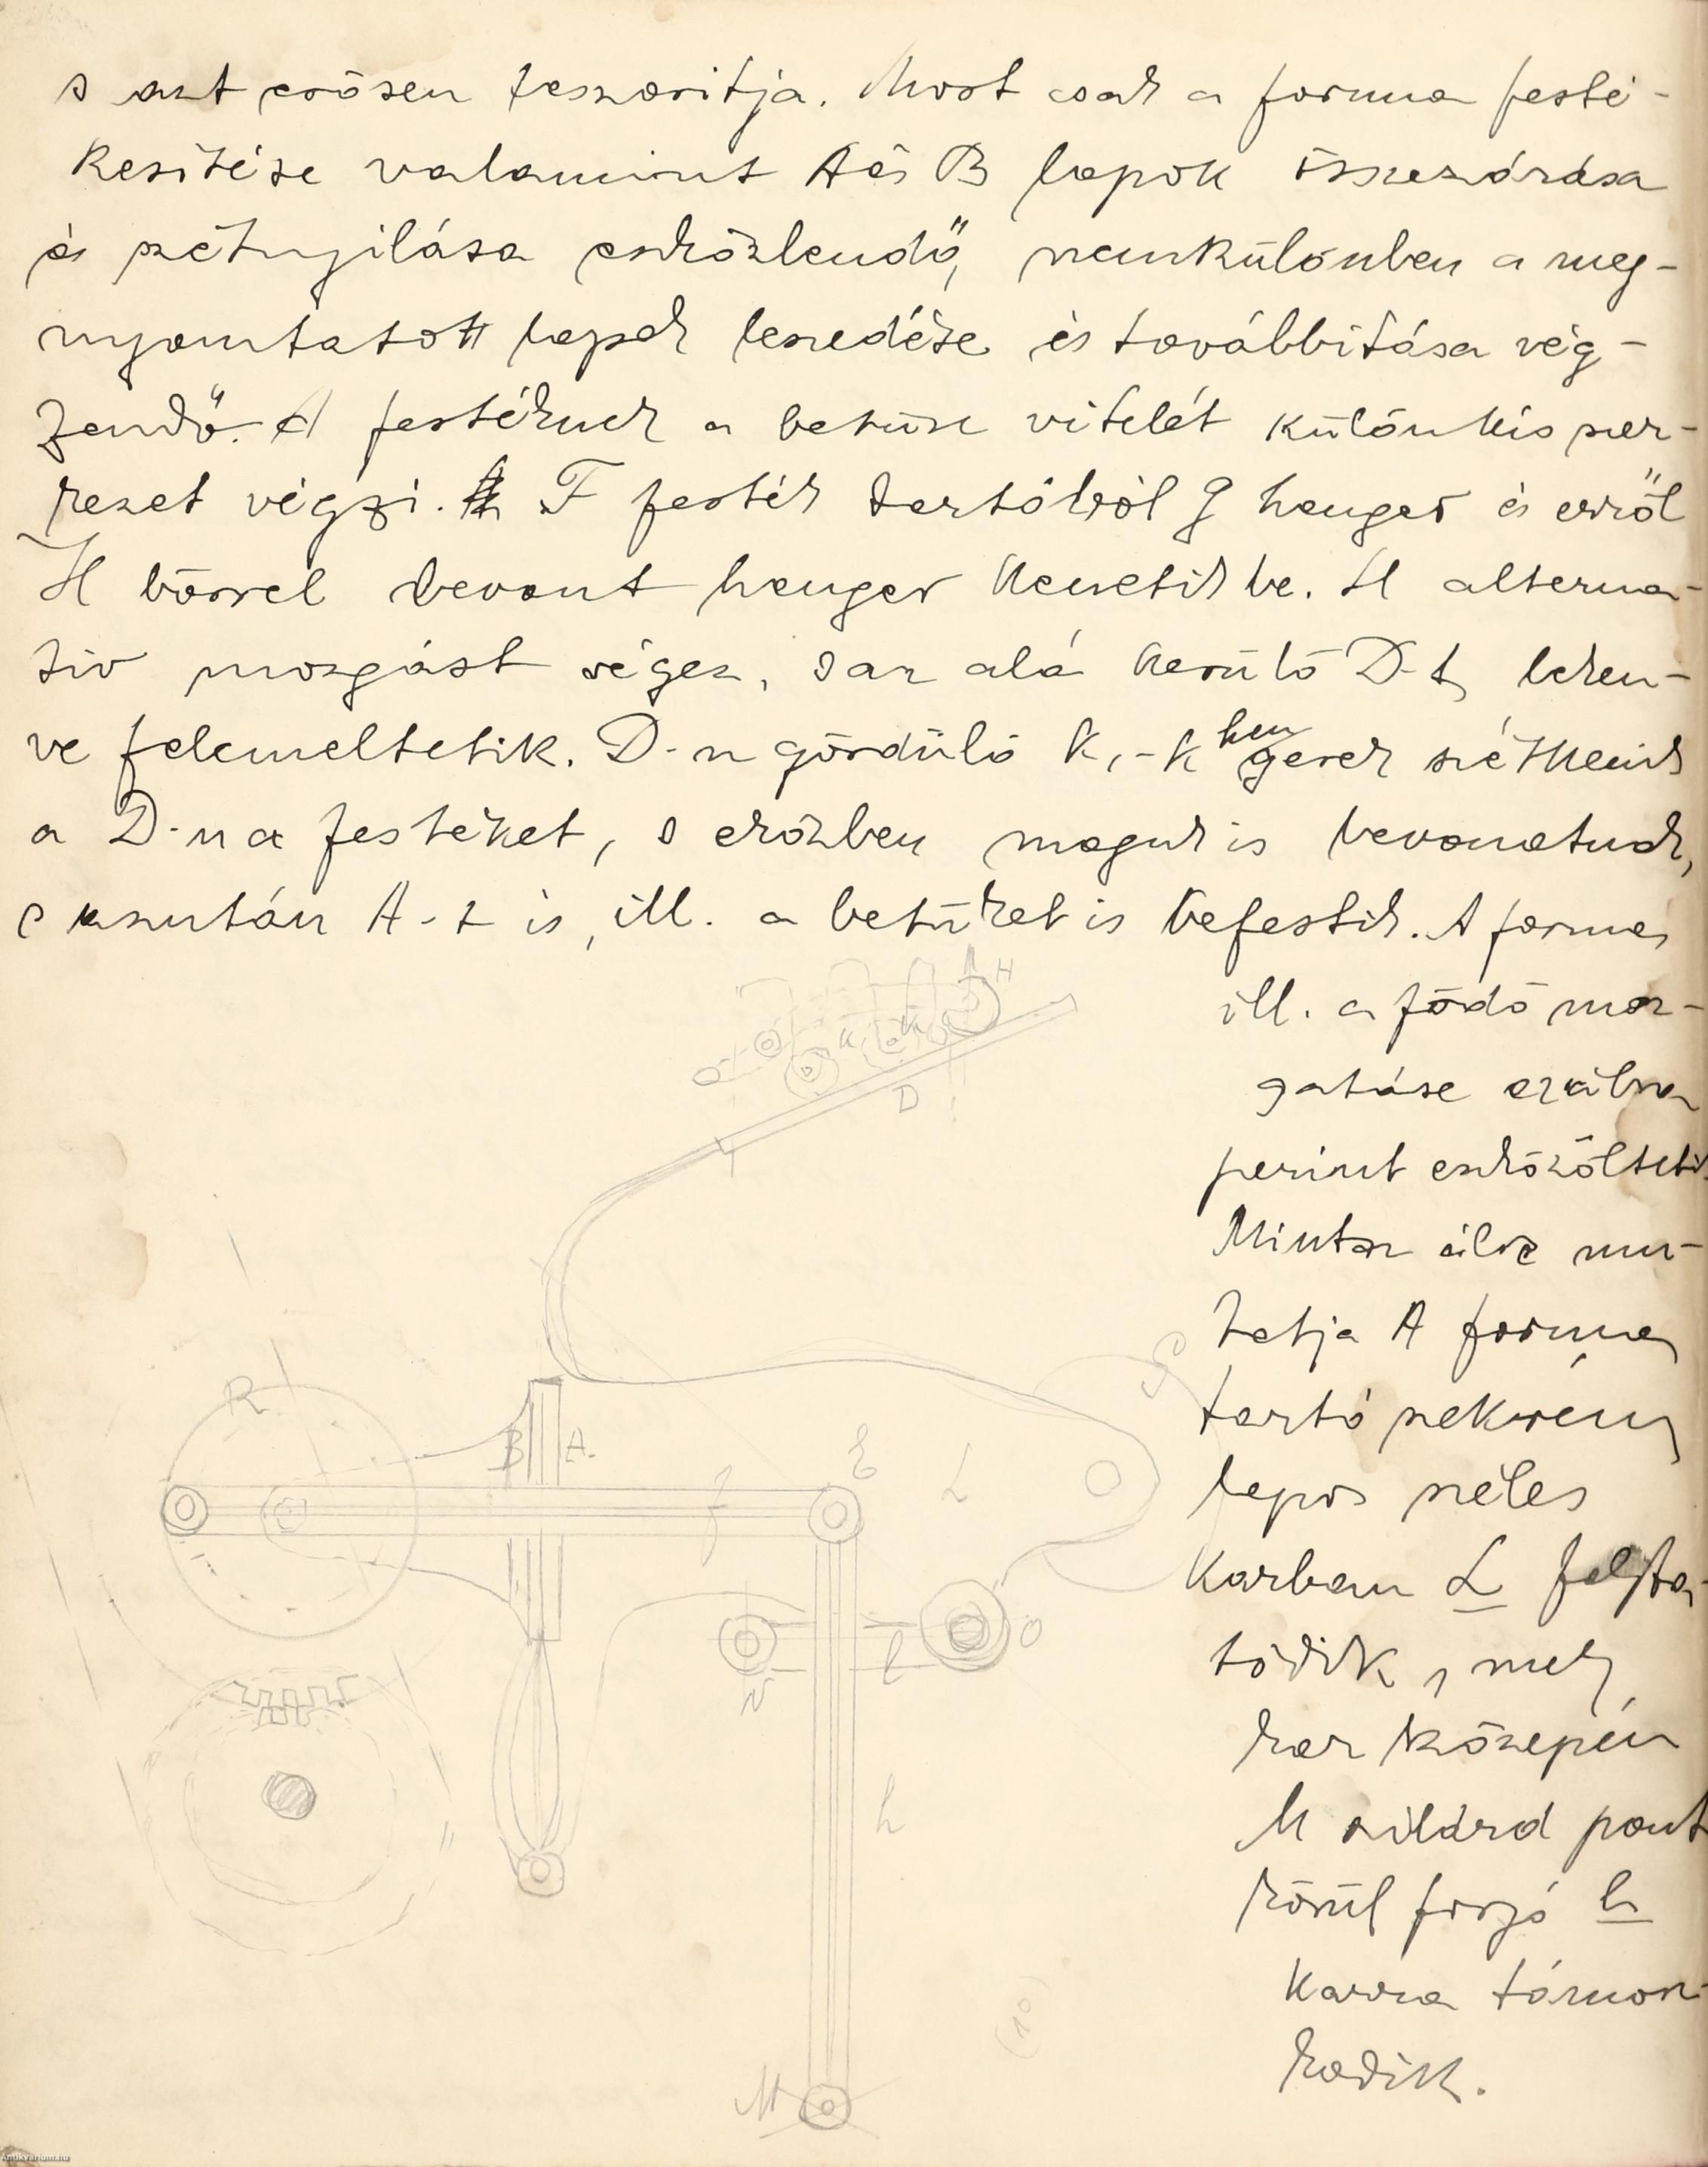 s azt erősen leszorítja. Most csak a forma festé-
kezitése valamint A és B lapok összezárása
és szétnyilása eszközlendő, nemkülönben a meg-
nyomtatott lapok leszedése és továbbitása vég-
zendő. A festéknek a betükre vitelét külön kis szer-
kezet végzi. F festék tartóból G henger és erről
H bőrrel bevont henger keneti be. H alterna-
tiv mozgást végez, s az alá kerülő D-t, leken-
ve felemeltetik. D-n gördülő K,-K hengerek szétkenik
a D-n a festéket, s eközben maguk is bevonatnak,
s azután A-t is, ill. a betüket is befestik. A forma
ill. a födő moz-
gatása ezábra
szerint eszközöltetik.
Mint az ábra mu-
tatja A forma
tartó szekrény
lapos széles
karban L folyta-
tódik, mely
kar közepén
M szilárd pont
körül forgó h
karra támasz-
kodik.
H
K K
D
S
R
B A.
E
f
L
l
O
N
h
(10)
M
Antikvarium.hu